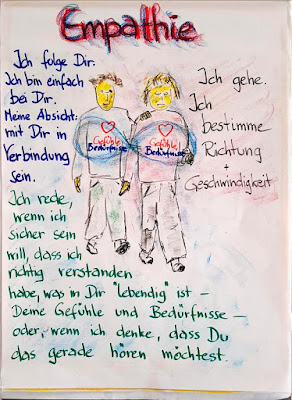 Empathie
Ich folge Dir.
Ich bin einfach
bei Dir.
Meine Absicht:
mit Dir in
Verbindung
sein.
Ich gehe.
Ich
bestimme
Richtung
+
Geschwindigkeit
Gefühle
Bedürfnisse
Gefühle
Bedürfnisse
Ich rede,
wenn ich
sicher sein
will, dass ich
richtig verstanden
habe, was in Dir "lebendig" ist –
Deine Gefühle und Bedürfnisse –
oder, wenn ich denke, dass Du
das gerade hören möchtest.